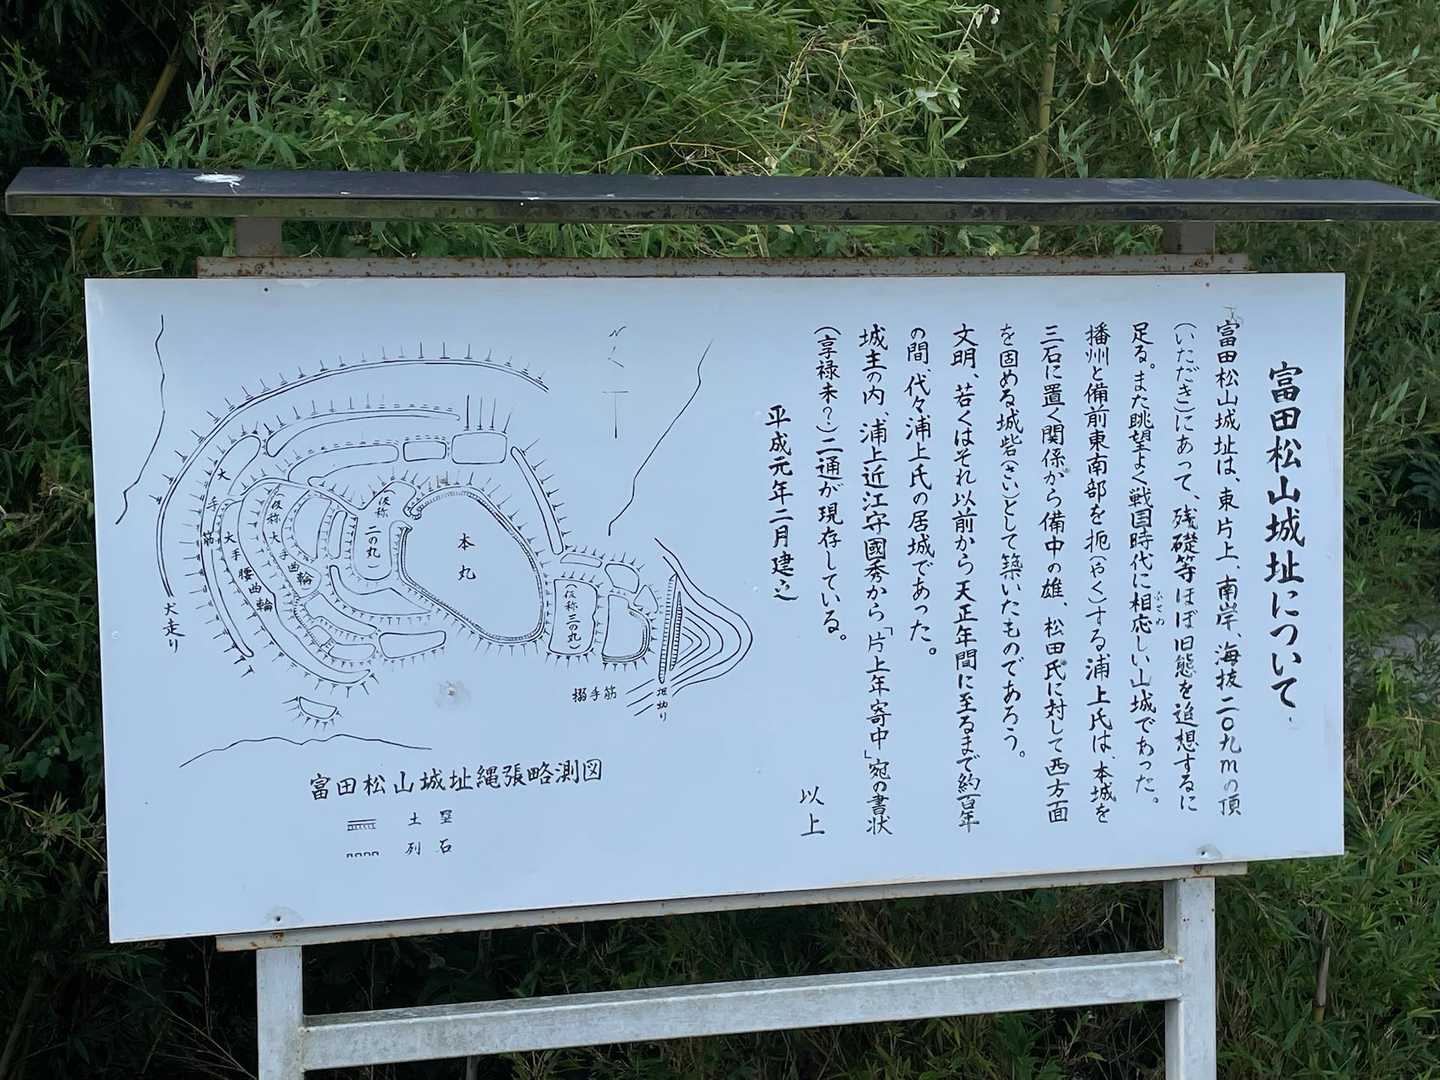 富田松山城址について
富田松山城址は、東片上、南岸、海抜二〇九mの頂
(いただき)にあって、残礎等ほぼ旧態を追想するに
足る。また眺望よく戦国時代に相応しい山城であった。
ふさわ
播州と備前東南部を扼(やく)する浦上氏は、本城を
三石に置く関係から備中の雄、松田氏に対して西方面
を固める城砦(さい)として築いたものであろう。
文明、若くはそれ以前から天正年間に至るまで約百年
の間、代々浦上氏の居城であった。
城主の内、浦上近江守國秀から「片上年寄中」宛の書状
(享禄末?)二通が現存している。
以上
平成元年二月建之
N
大手筋
大手腰曲輪
(仮称大手曲輪)
(仮称二の丸)
本丸
(仮称三の丸)
犬走り
搦手筋
堀切り
富田松山城址縄張略測図
土塁
列石